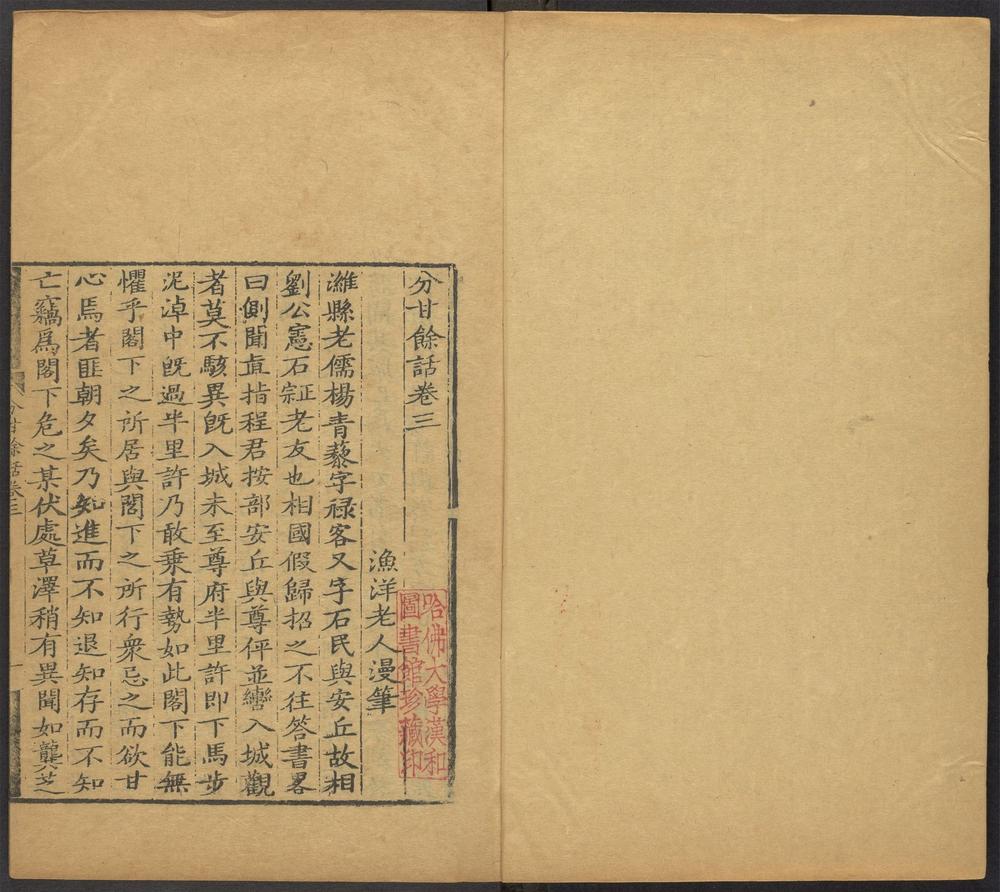 分甘餘話卷三
漁洋老人漫筆
濰縣老儒楊青藜字祿客又字石民與安丘故相
劉公憲石正宗老友也相國假歸招之不往答書畧
曰側聞直指程君按部安丘與尊伻並轡入城觀
者莫不駭異旣入城未至尊府半里許即下馬步
泥淖中旣過半里許乃敢乗有勢如此閣下能無
懼乎閣下之所居與閣下之所行衆忌之而欲甘
心焉者匪朝夕矣乃知進而不知退知存而不知
亡竊爲閣下危之某伏處草澤稍有異聞如龔芝
分甘餘話卷三
一
哈佛大學漢和
圖書館珍藏印